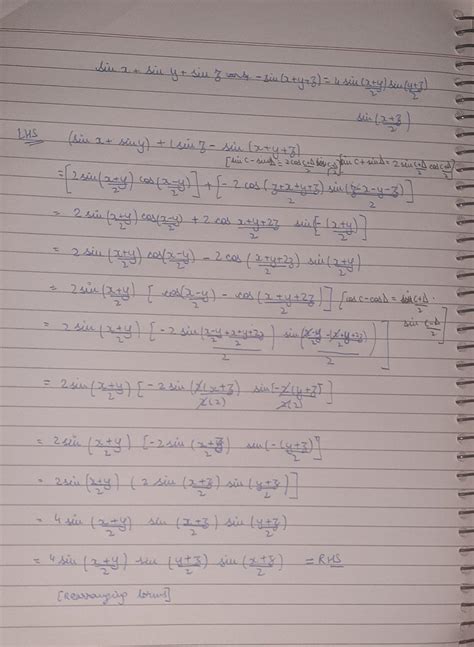 sin x + sin y + sin z - sin(x+y+z) = 4 sin(x+y)/2 sin(y+z)/2
sin(x+z)/2
LHS (sin x + sin y) + (sin z - sin(x+y+z)
[sin C - sin D = 2 cos(C+D)/2 sin(C-D)/2] sin C + sin D = 2 sin C+D/2 cos C-D/2
= [2 sin(x+y)/2 cos(x-y)/2] + [-2 cos(z+x+y+z)/2 sin(z-x-y-z)/2]
= 2 sin(x+y)/2 cos(x-y)/2 + 2 cos x+y+2z/2 sin[-(x+y)/2]
= 2 sin(x+y)/2 cos(x-y)/2 - 2 cos (x+y+2z)/2 sin(x+y)/2
= 2 sin(x+y)/2 [cos(x-y)/2 - cos(x+y+2z)/2] [cos C - cos D = sin C+D/2 sin C-D/2]
= 2 sin(x+y)/2 [-2 sin(x-y+x+y+2z)/2/2 sin(x-y-x+y+2z)/2/2]
= 2 sin(x+y)/2 [-2 sin(2(x+z)/2(2)) sin(-2(y+z)/2(2)]
= 2 sin (x+y)/2 [-2 sin(x+z)/2 sin(-(y+z)/2)]
= 2 sin (x+y)/2 (2 sin (x+z)/2 sin(y+z)/2]
= 4 sin (x+y)/2 sin (x+z)/2 sin(y+z)/2
= 4 sin(x+y)/2 sin (y+z)/2 sin(x+z)/2 = RHS
[Rearranging terms]